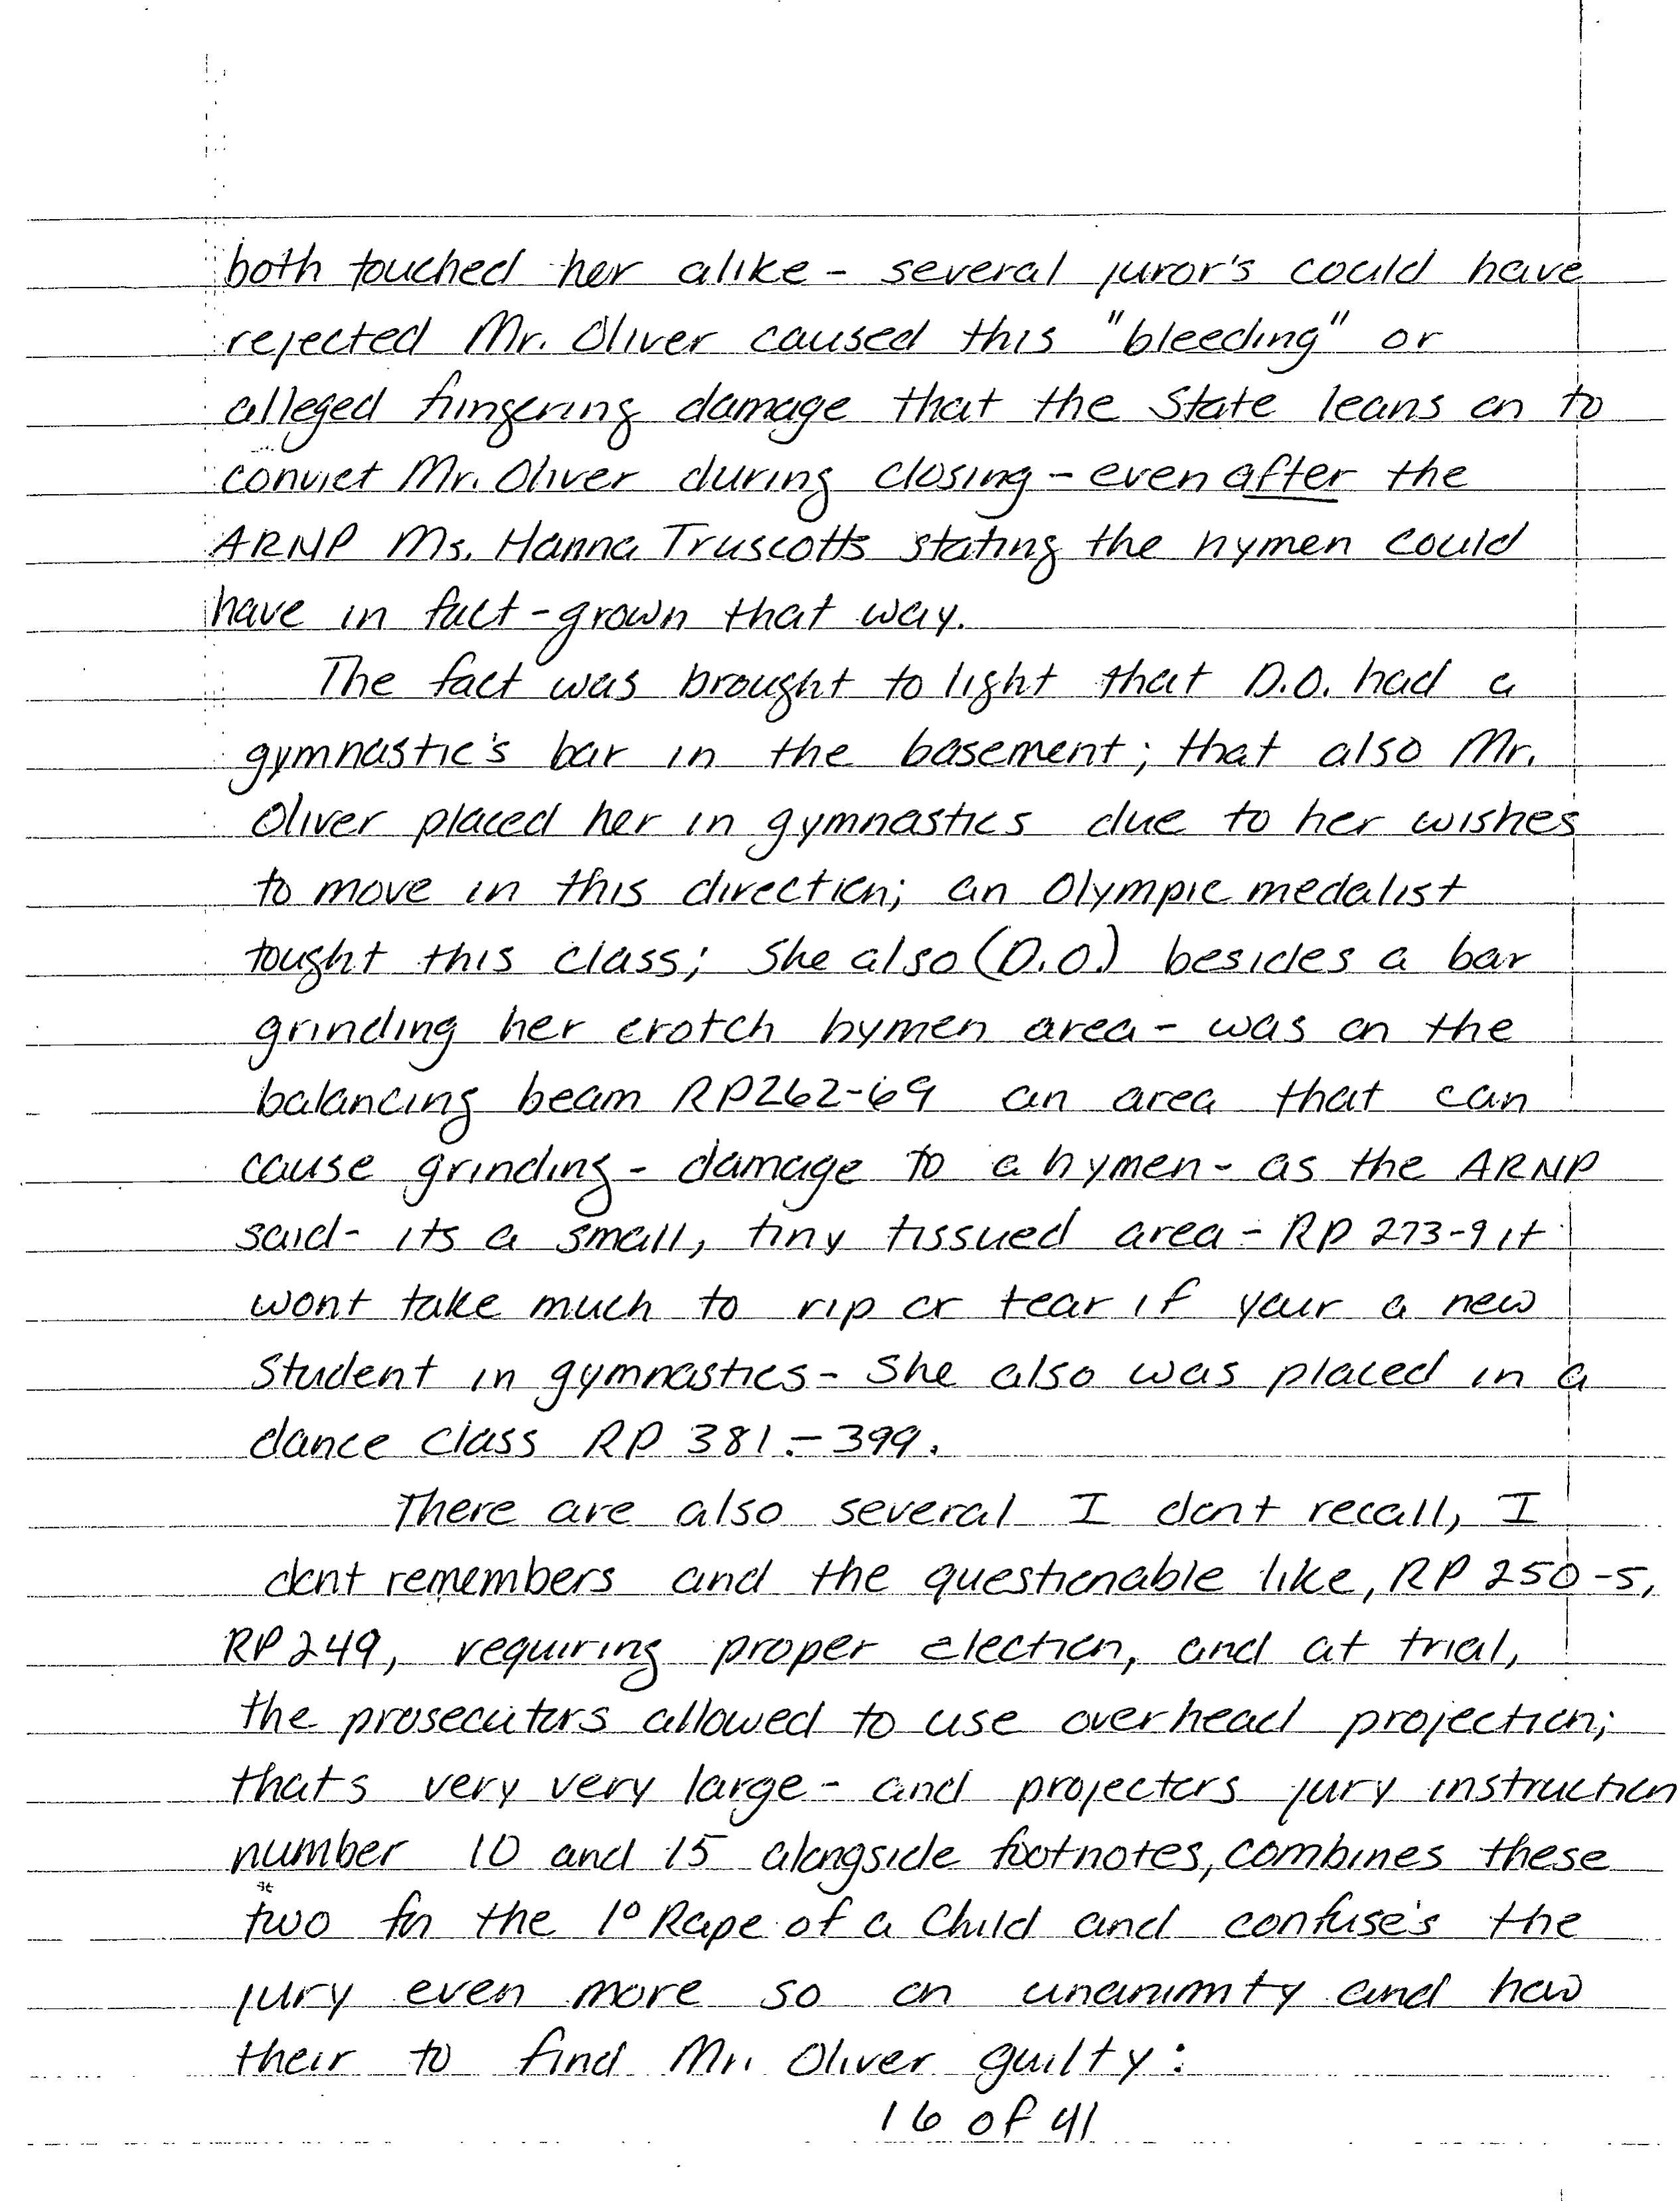 both touched her alike - several juror's could have
rejected Mr. Oliver caused this "bleeding" or
alleged fingering damage that the State leans on to
convict Mr. Oliver during closing - even after the
ARNP Ms. Hanna Truscotts stating the hymen could
have in fact - grown that way.
The fact was brought to light that D.O. had a
gymnastic's bar in the basement; that also Mr.
Oliver placed her in gymnastics due to her wishes
to move in this direction; an Olympic medalist
tought this class; She also (D.O.) besides a bar
grinding her crotch hymen area - was on the
balancing beam RP262-69 an area that can
cause grinding - damage to a hymen - as the ARNP
said - its a small, tiny tissued area - RP 273-9 it
wont take much to rip or tear if your a new
Student in gymnastics - She also was placed in a
dance class RP 381 - 399.
There are also several I dont recall, I
dont remembers and the questionable like, RP 250-5,
RP 249, requiring proper election, and at trial,
the prosecutors allowed to use overhead projection;
thats very very large - and projectors jury instruction
number 10 and 15 alongside footnotes, combines these
two for the 1° Rape of a Child and confuse's the
jury even more so on unanimity and how
their to find Mr. Oliver guilty:
16 of 41